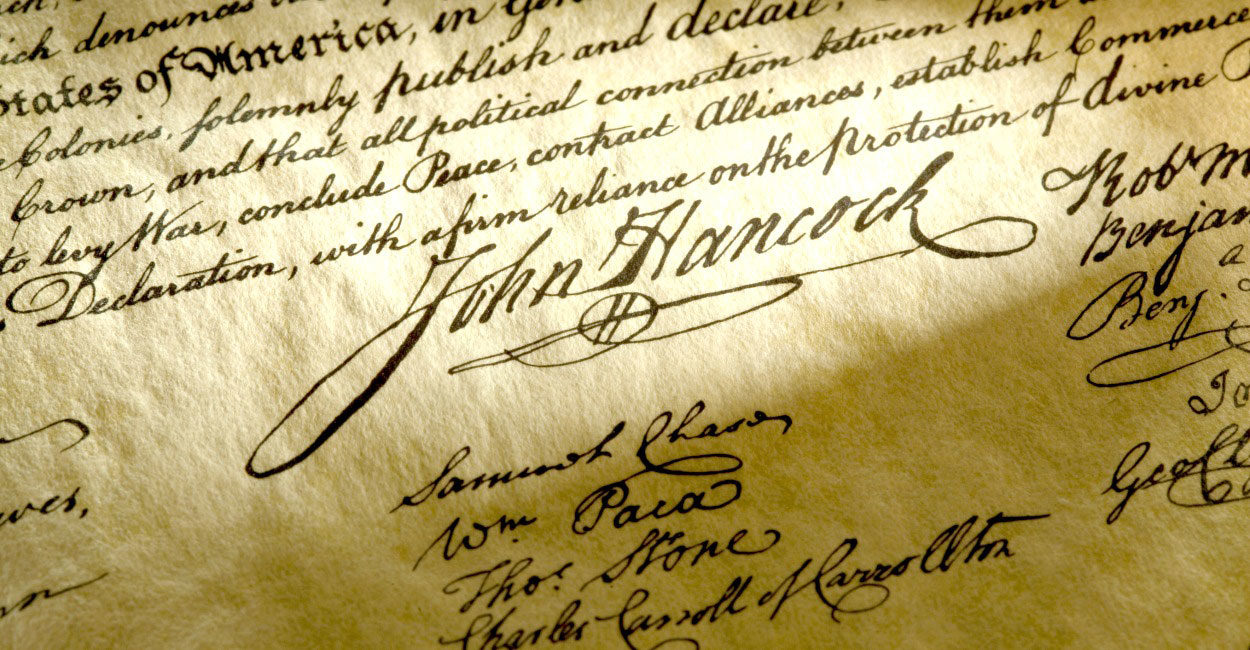 denounces
States of America, in
Colonies, solemnly publish and declare,
Crown, and that all political connection between them
to levy War, conclude Peace, contract Alliances, establish Commerce
Declaration, with a firm reliance on the protection of divine
John Hancock
Samuel Chase
Wm. Paca
Thos. Stone
Charles Carroll of Carrollton
Robt M
Benjam
Benj.
Geo